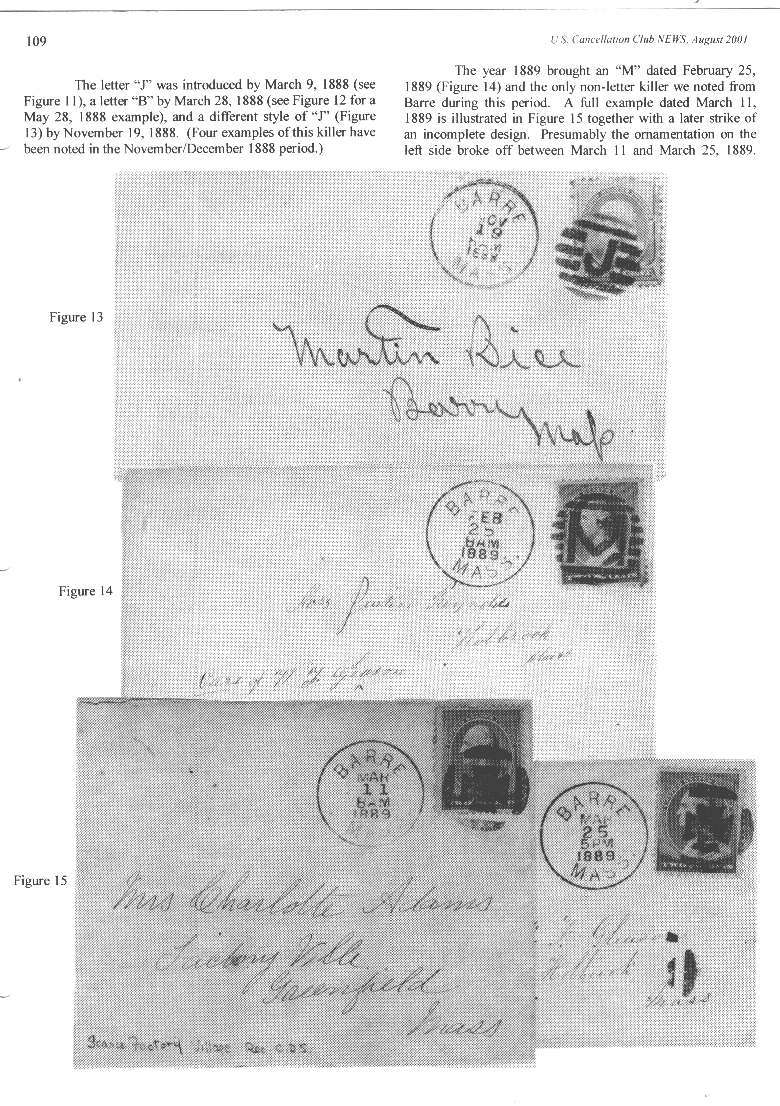 109
U.S. Cancellation Club NEWS, August 2001
The letter “J” was introduced by March 9, 1888 (see
Figure 11), a letter “B” by March 28, 1888 (see Figure 12 for a
May 28, 1888 example), and a different style of “J” (Figure
13) by November 19, 1888. (Four examples of this killer have
been noted in the November/December 1888 period.)
The year 1889 brought an “M” dated February 25,
1889 (Figure 14) and the only non-letter killer we noted from
Barre during this period. A full example dated March 11,
1889 is illustrated in Figure 15 together with a later strike of
an incomplete design. Presumably the ornamentation on the
left side broke off between March 11 and March 25, 1889.
Figure 13
BARRE
NOV
19
MASS.
J
Martin Rice
Barry
Mass
Figure 14
BARRE
FEB
25
6AM
1889
MASS.
Reynolds
Holbrook
Mass
Care of
Gleason
Figure 15
BARRE
MAR
11
6AM
1889
Mrs Charlotte Adams
Factory Ville
Greenfield
Mass
Factory Village Rec C.D.S.
BARRE
MAR
25
5PM
1889
MASS.
Holbrook
Mass